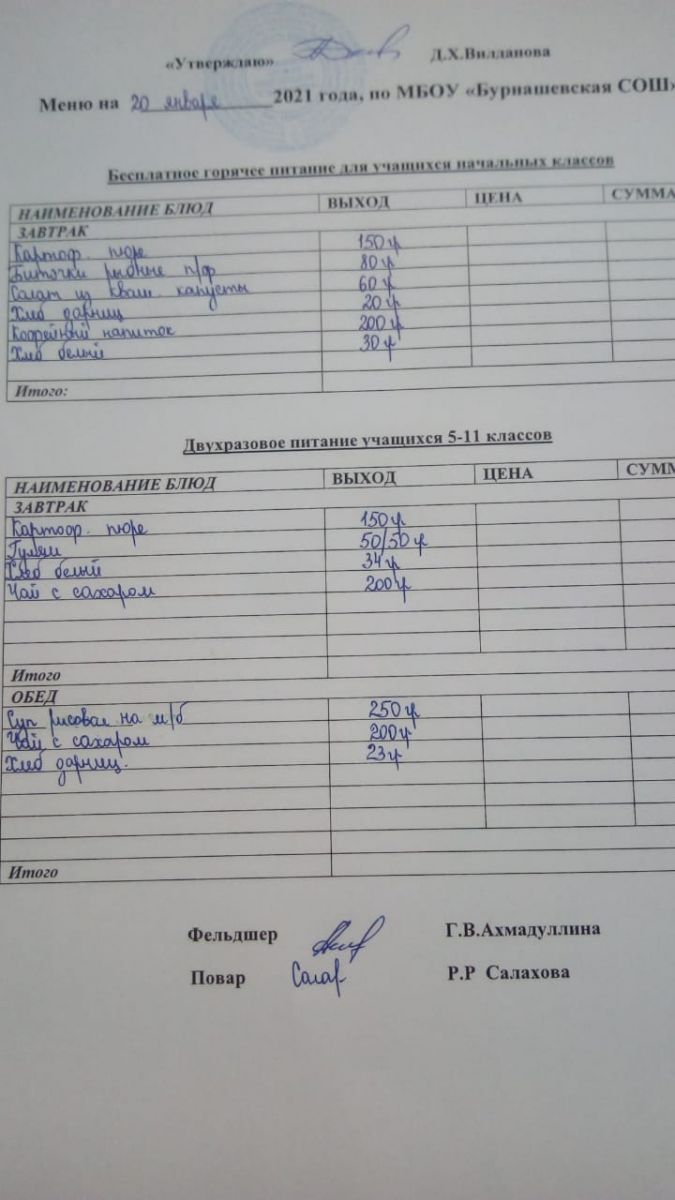 «Утверждаю» Д.Х.Вилданова
Меню на 20 января 2021 года, по МБОУ «Бурнашевская СОШ»
Бесплатное горячее питание для учащихся начальных классов
НАИМЕНОВАНИЕ БЛЮД ВЫХОД ЦЕНА СУММА
ЗАВТРАК
Картоф. пюре 150г
Биточки рыбные п/ф 80г
Салат из кваш. капусты 60г
Хлеб дарниц 20г
Кофейный напиток 200г
Хлеб белый 30г
Итого:
Двухразовое питание учащихся 5-11 классов
НАИМЕНОВАНИЕ БЛЮД ВЫХОД ЦЕНА СУММ
ЗАВТРАК
Картоф. пюре 150г
Гуляш 50/50г
Хлеб белый 34г
Чай с сахаром 200г
Итого
ОБЕД
Суп рисовая на м/б 250г
Чай с сахаром 200г
Хлеб дарниц. 23г
Итого
Фельдшер Г.В.Ахмадуллина
Повар Салах Р.Р Салахова